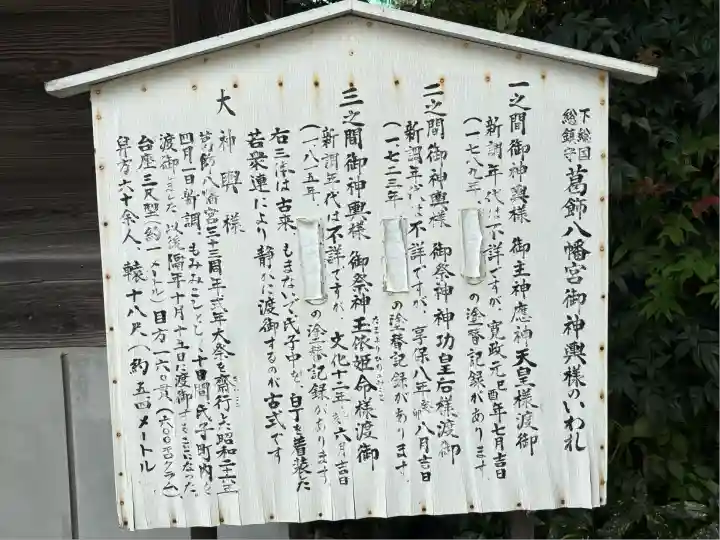 下総国
総鎮守
葛飾八幡宮御神輿様のいわれ
一之間御神輿様 御主神應神天皇様渡御
新調年代は不詳ですが、寛政元己酉年七月吉日
(一、七八九年、
の塗替記録があります
二之間御神輿様 御祭神神功皇后様渡御
新調年代は不詳ですが、享保八年癸卯八月吉日
(一、七二三年、
の塗替記録があります
三之間御神輿様 御祭神玉依姫命様渡御
新調年代は不詳ですが 文化十二年 六月吉日
(一、八一五年、
の塗替記録があります
右三体は古来、もまないで氏子中を、白丁を着装した
若衆連により静かに渡御するのが古式です
大神輿様
葛飾八幡宮三十三周年式年大祭を齋行した昭和二十六年
四月一日新調、もみみこしとし、十日間氏子町内を
渡御しました 以後隔年十月十五日に渡御するきになった、
台座三尺型(約一メートル)目方一六〇貫(六〇〇キログラム)
舁方六十余人、轅十八尺(約五・四メートル